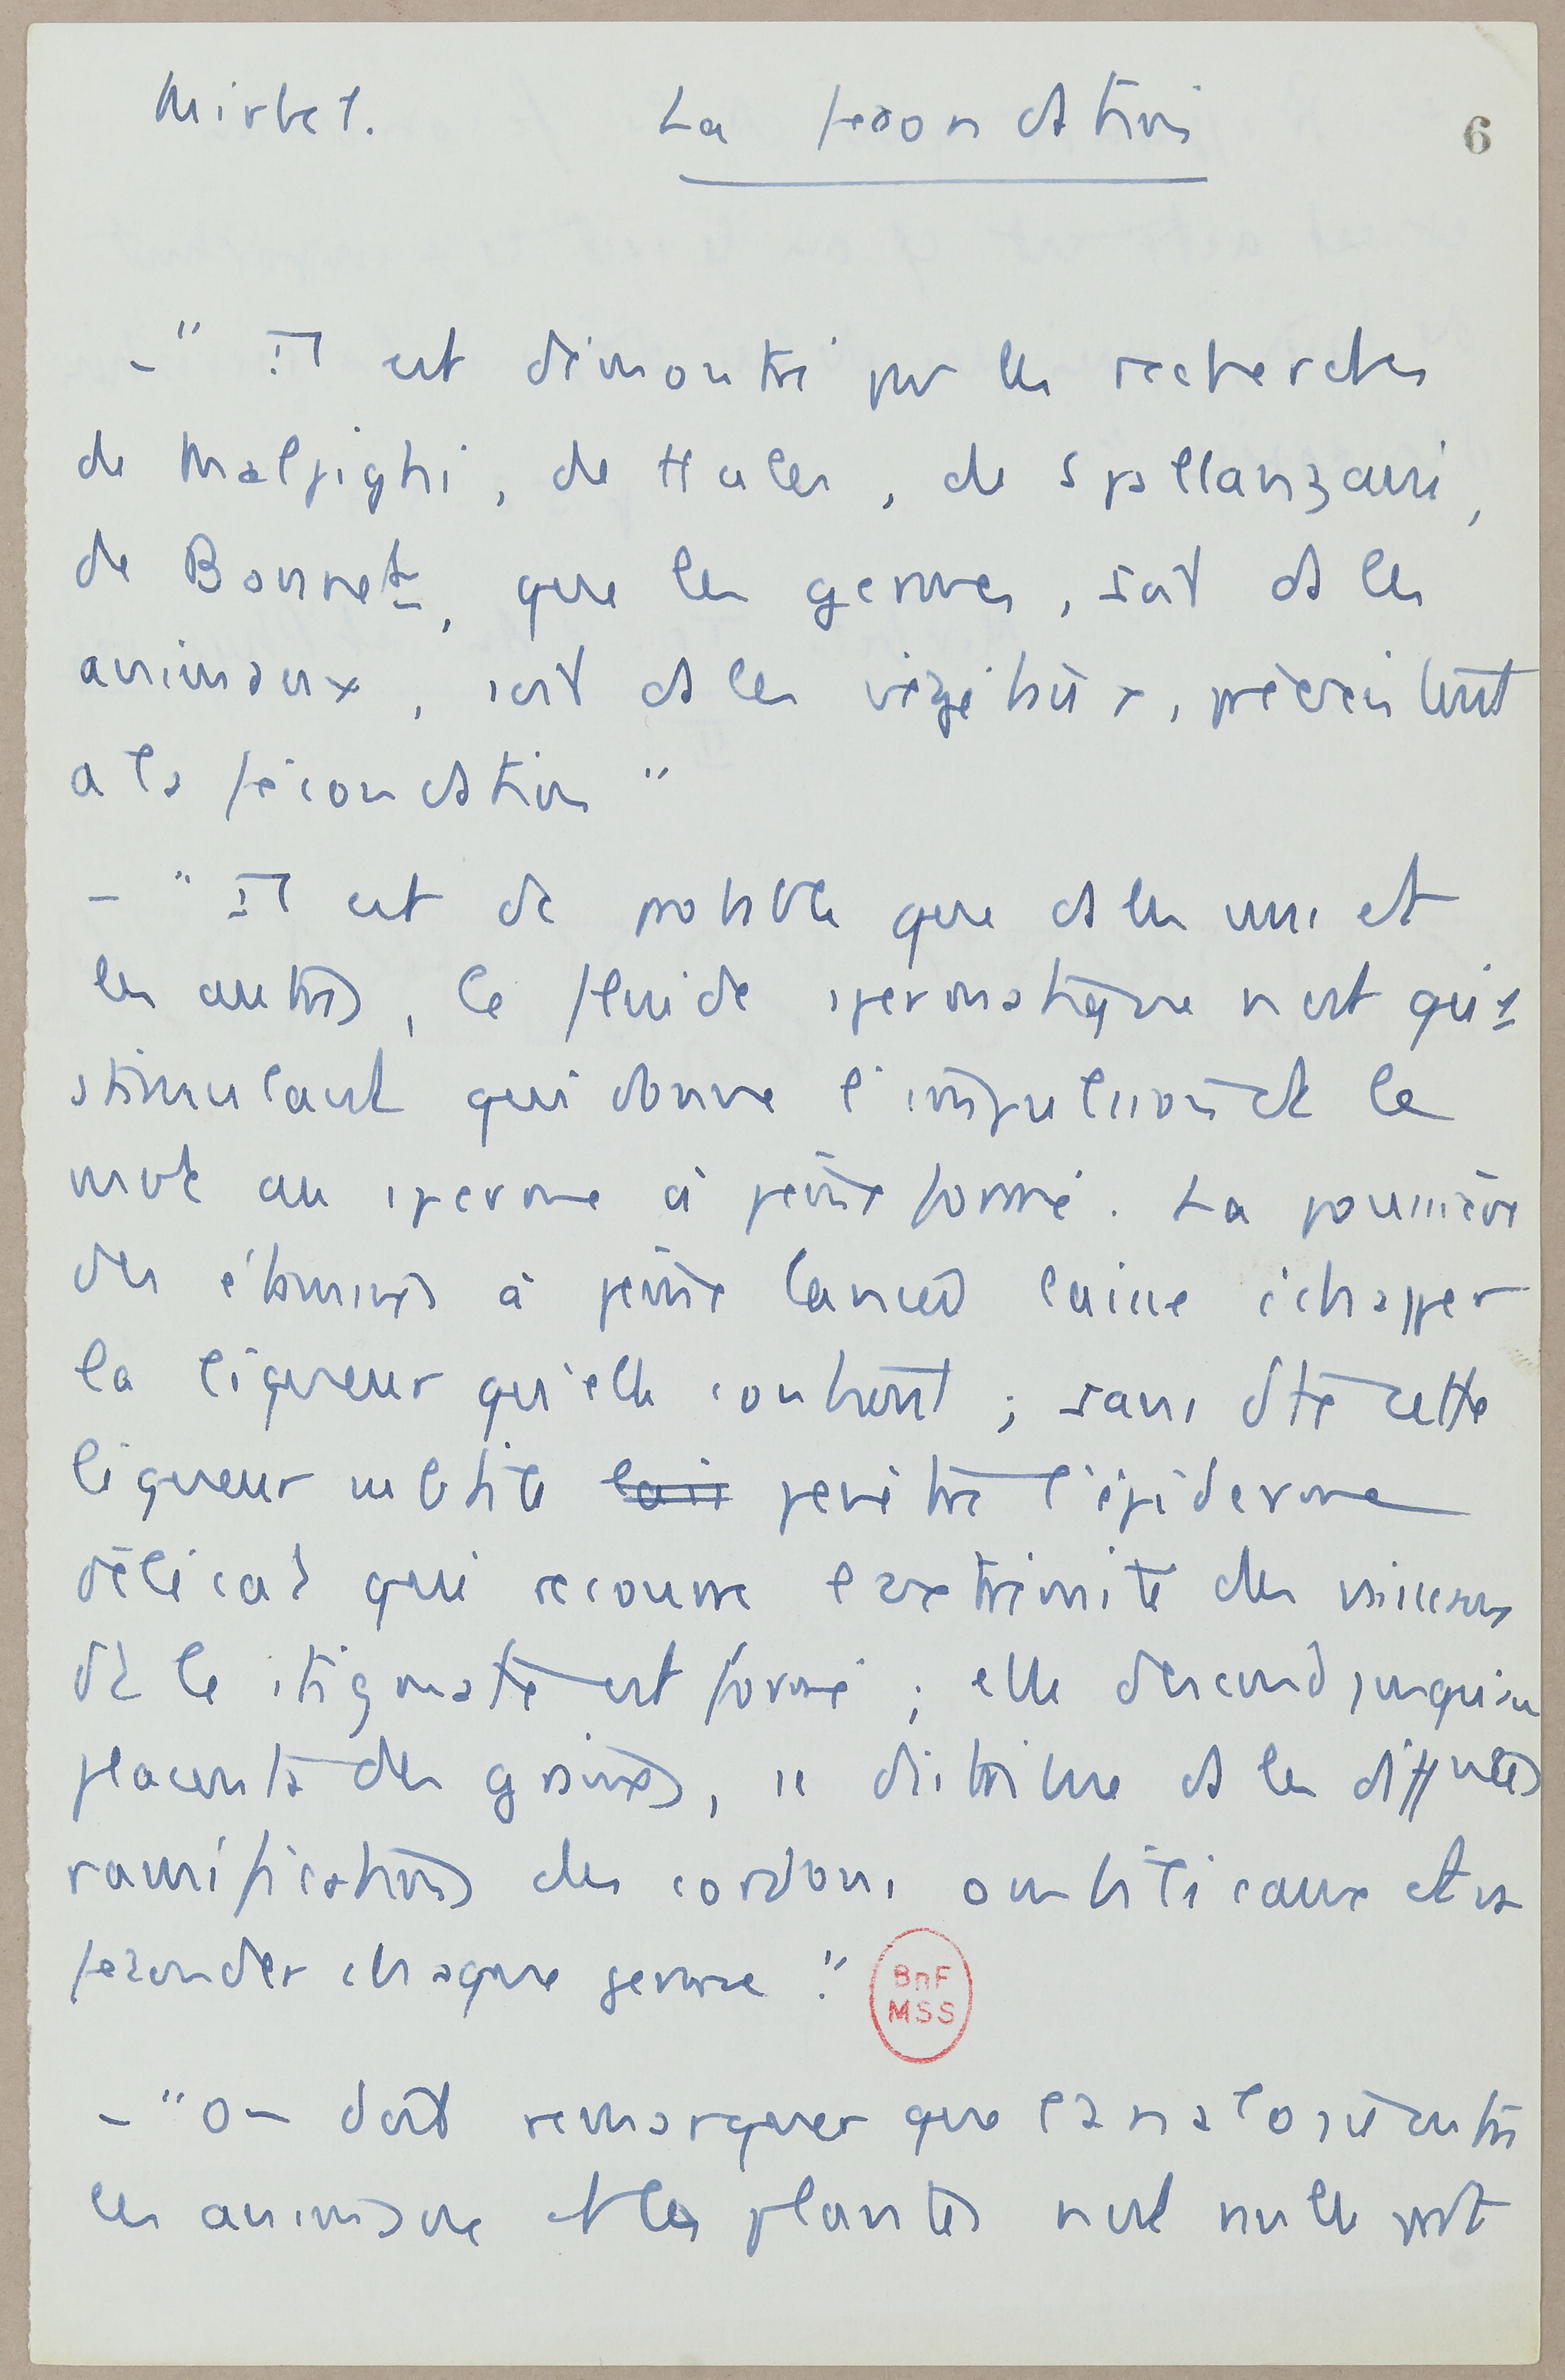 Mirbel. La fécondation
6
- " Il est démontré par les recherches
de Malpighi, de Hales, de Spallanzani,
de Bonnet, que les germes, soit ds les
animaux, soit ds les végétaux, préexistent
a la fécondation "
- " Il est de probable que ds les uns et
les autres, le fluide spermatique n'est qu'1
stimulant qui donne l'impulsion et le
mvt au sperme à peine formé. La poussière
des étamines à peine lancée laisse échapper
la liqueur qu'elle contient ; sans dte cette
liqueur subtile lais pénètre l'épiderme
délicat qui recouvre l'extrémité des vaisseaux
dt le stigmate est formé ; elle descend jusqu'au
placenta des graines, se distribue ds les différentes
ramifications des cordons ombilicaux et va
féconder chaque germe."
BnF
MSS
- " On doit remarquer que l'analogie entre
les animaux et les plantes n'est nulle part